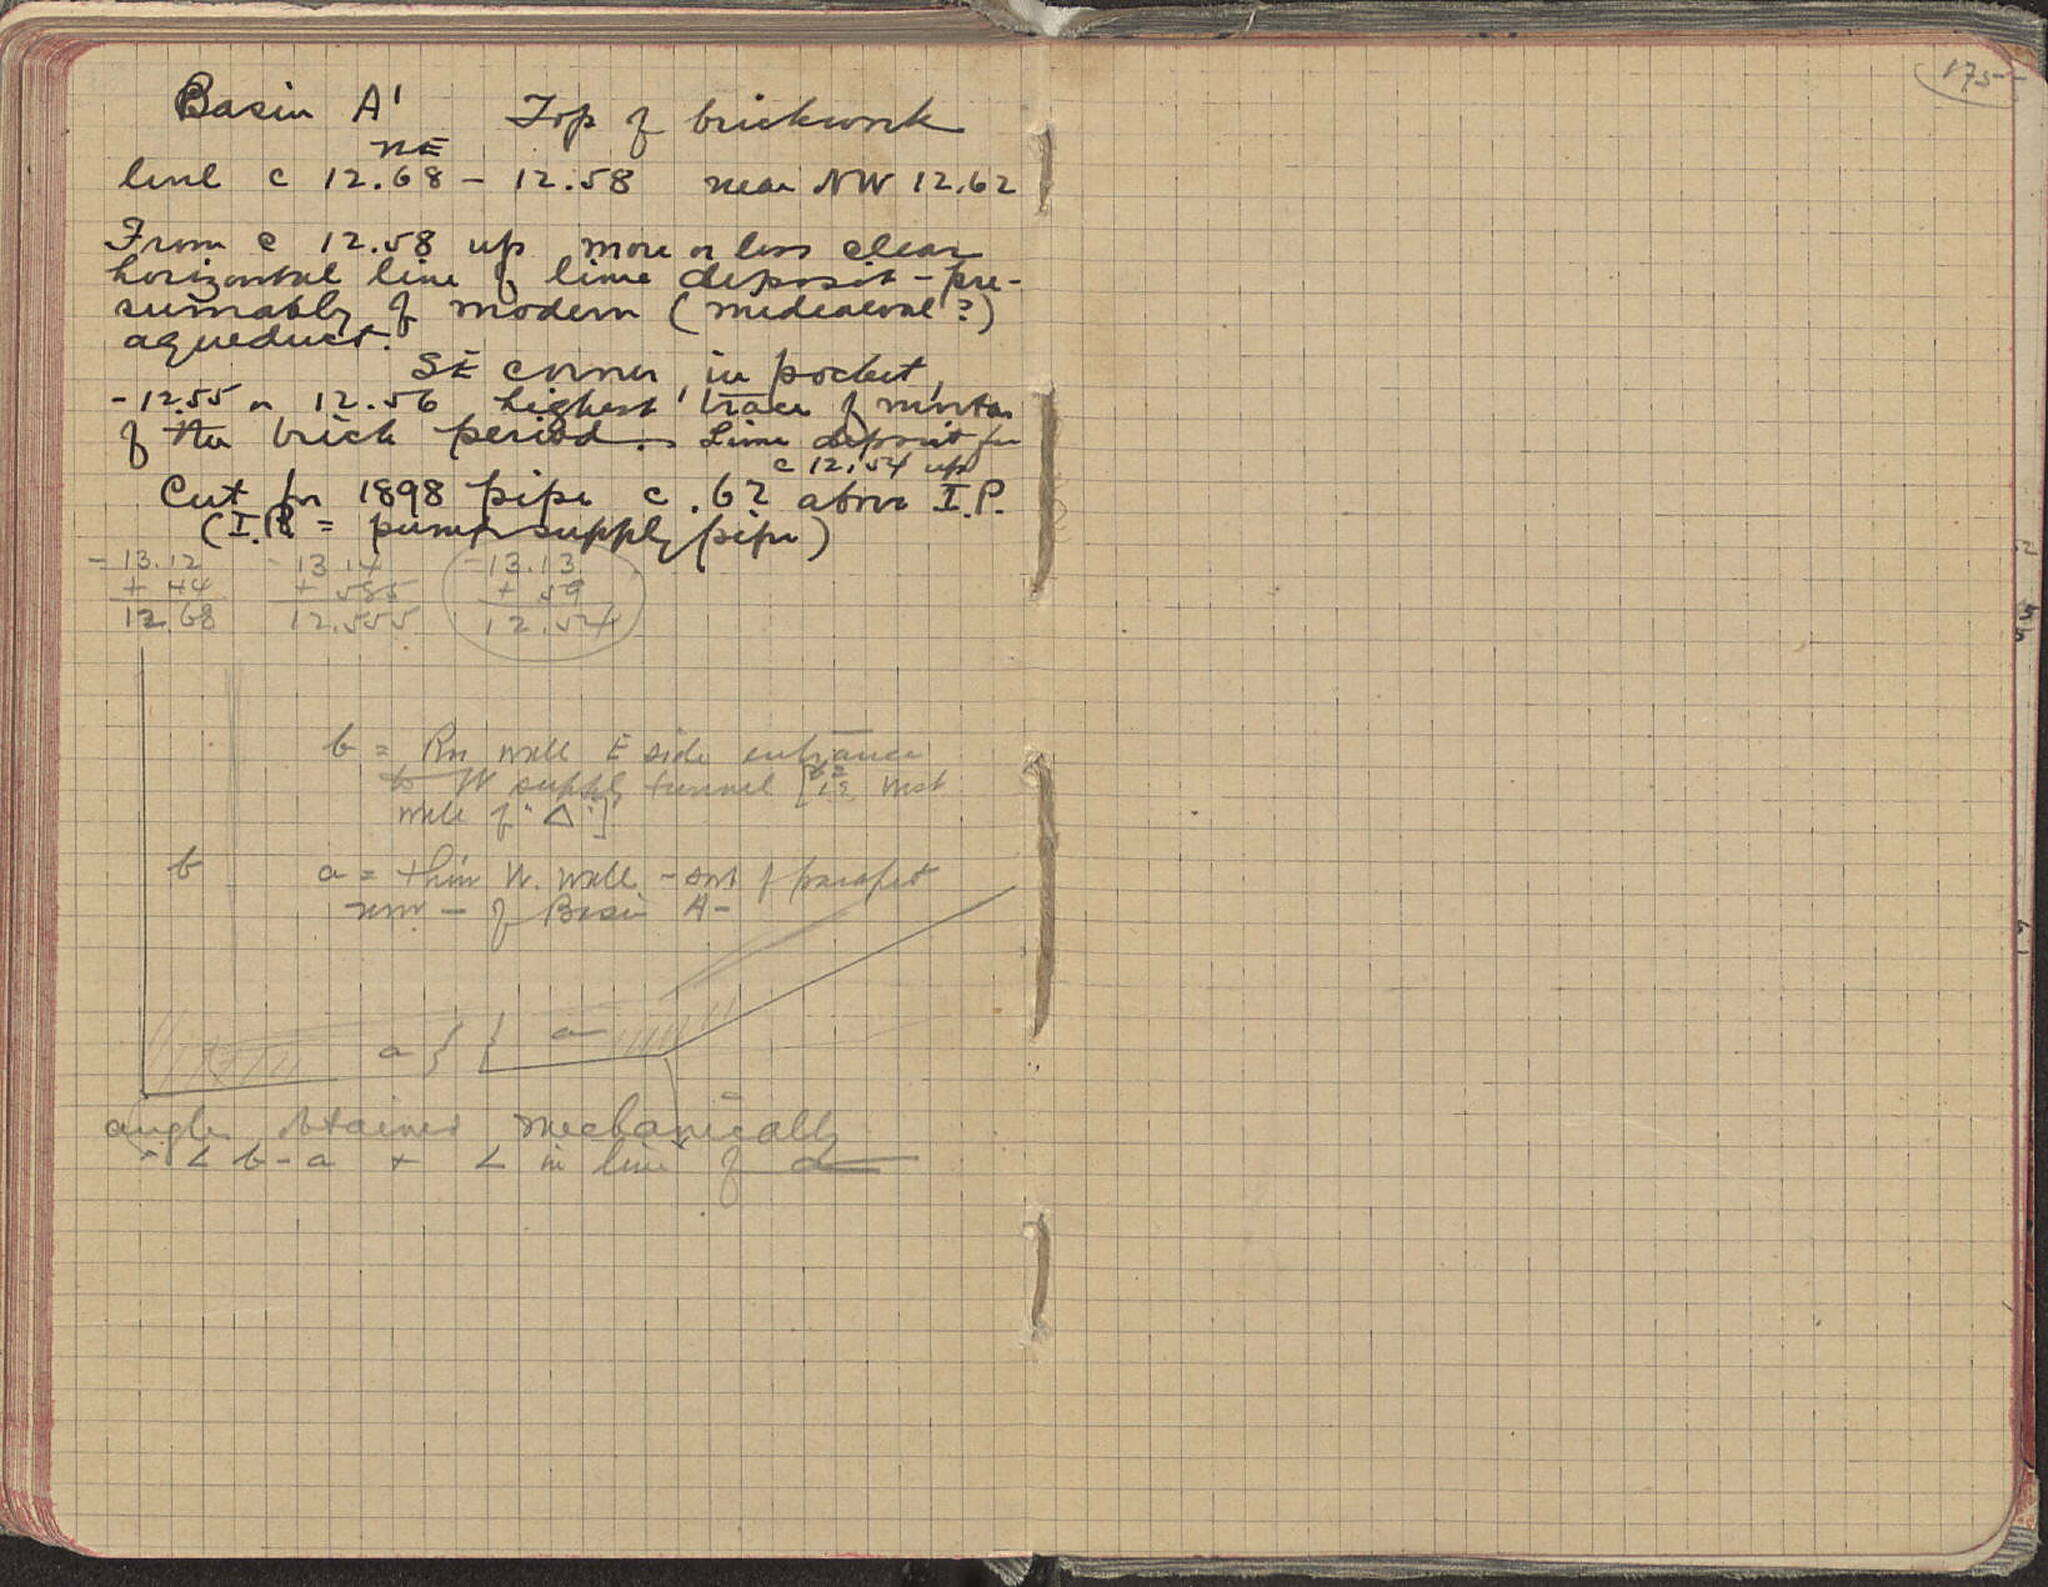 175
Basin A' Top of brickwork
NE
level c 12.68 - 12.58 near NW 12.62
From c 12.58 up more or less clear
horizontal line of lime deposit - pre-
sumably of modern (mediaeval?)
aqueduct.
SE corner, in pocket,
- 12.55 or 12.56 highest trace of mortar
of the brick period. Lime deposit fr
c 12.54 up
Cut for 1898 pipe c .62 above I.P.
(I.P. = pump supply pipe)
- 13.12 - 13 14 - 13.13
+ 44 + 585 + 59
12.68 12.555 12.54
b = Rn wall E side entrance
to W supply tunnel [ west
wall of "Δ"]
b a = thin W. wall - sort of parapet
now - of Basin A -
a a
angles obtained mechanically
∠ b - a + ∠ in line of a